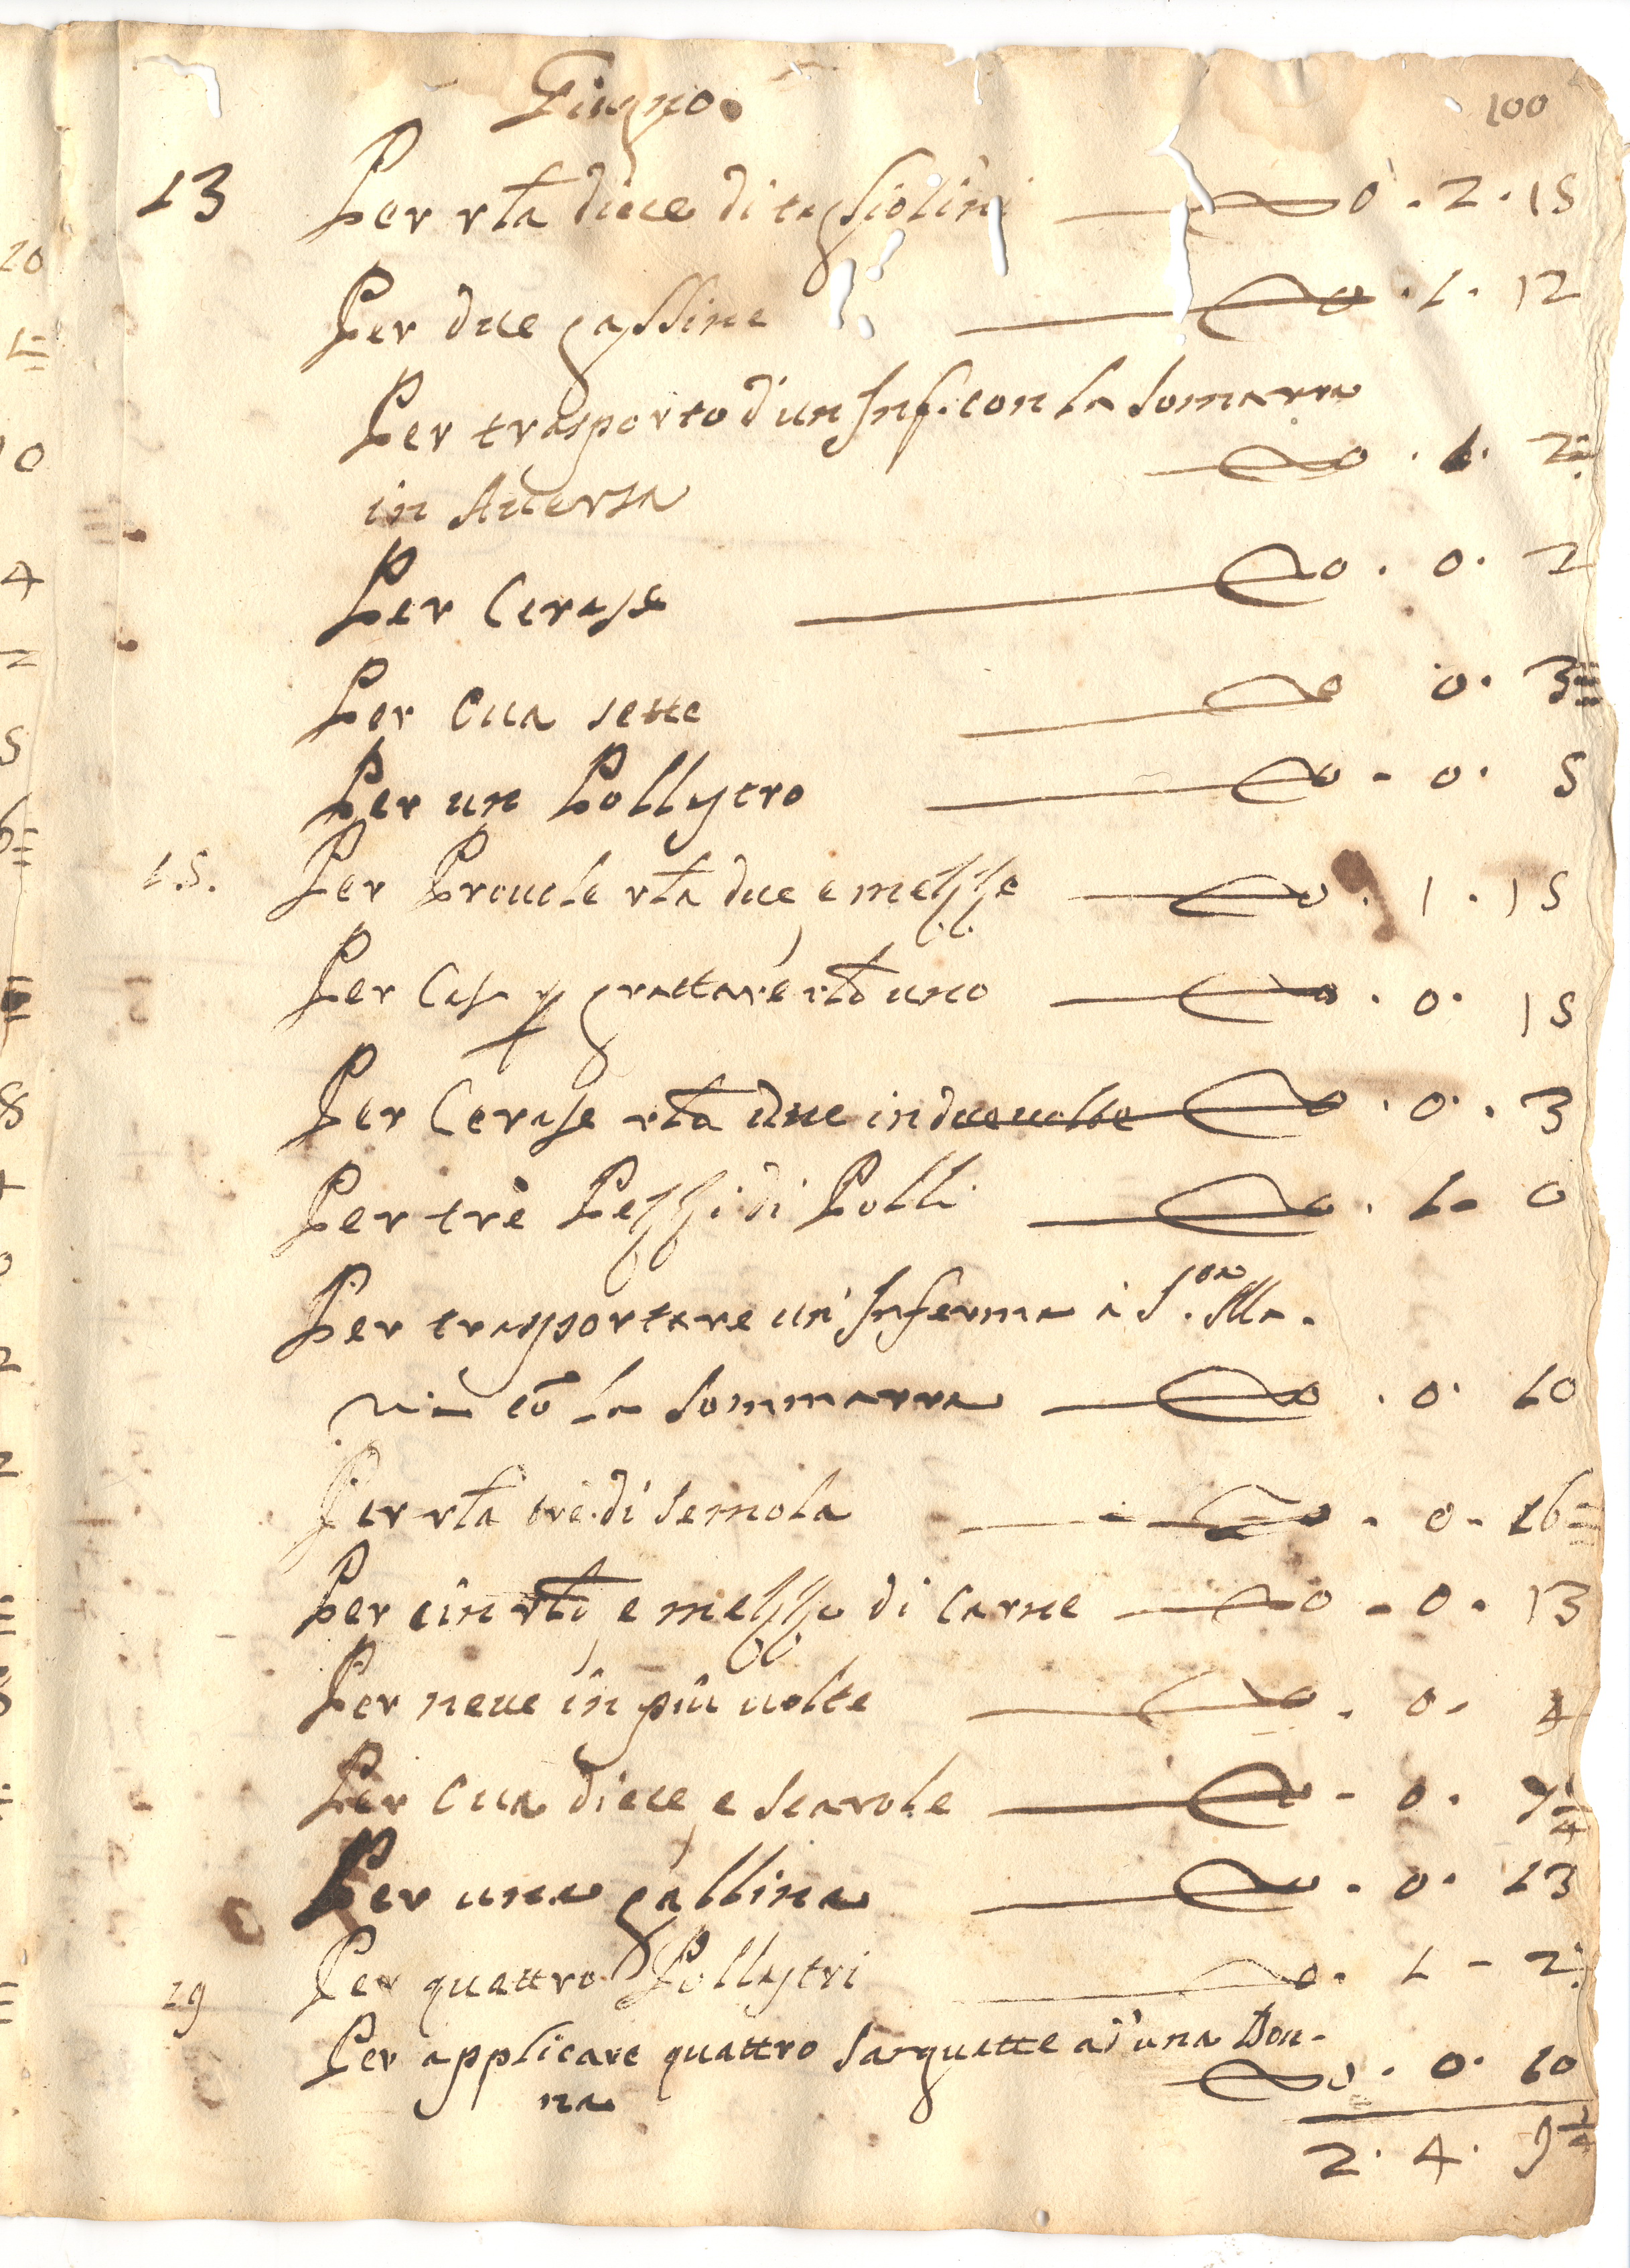 Giugno.
100
13 Per rta diece di tagliolini 0 . 2 . 15
Per due galline 0 . 1 . 12
Per trasporto d'un Inf. con la somarra
in Auersa 0 . 1 . 2
Per Cerase 0 . 0 . 2
Per Oua sette 0 . 3
Per un Pollastro 0 - 0 . 5
15. Per Prouole rta due, e mezze 0 . 1 . 15
Per Caso p grattare, rto uno 0 . 0 . 15
Per Cerase rta due in due uolte 0 . 0 . 3
Per trè Pezzi di Polli 0 . 1 - 0
Per trasportare un' Inferma à S. Ma-
ria cō la sommarra 0 . 0 . 10
Per rta trè di semola 0 - 0 - 16
Per un rto, e mezzo di Carne 0 - 0 . 13
Per neue in più uolte 0 . 0 . 4
Per Oua diece, e scarole 0 - 0 .
Per una gallina 0 . 0 . 13
19 Per quattro Pollastri 0 . 1 - 2
Per applicare quattro sanguette ad una Don-
na 0 . 0 . 10
2 . 4 . 9